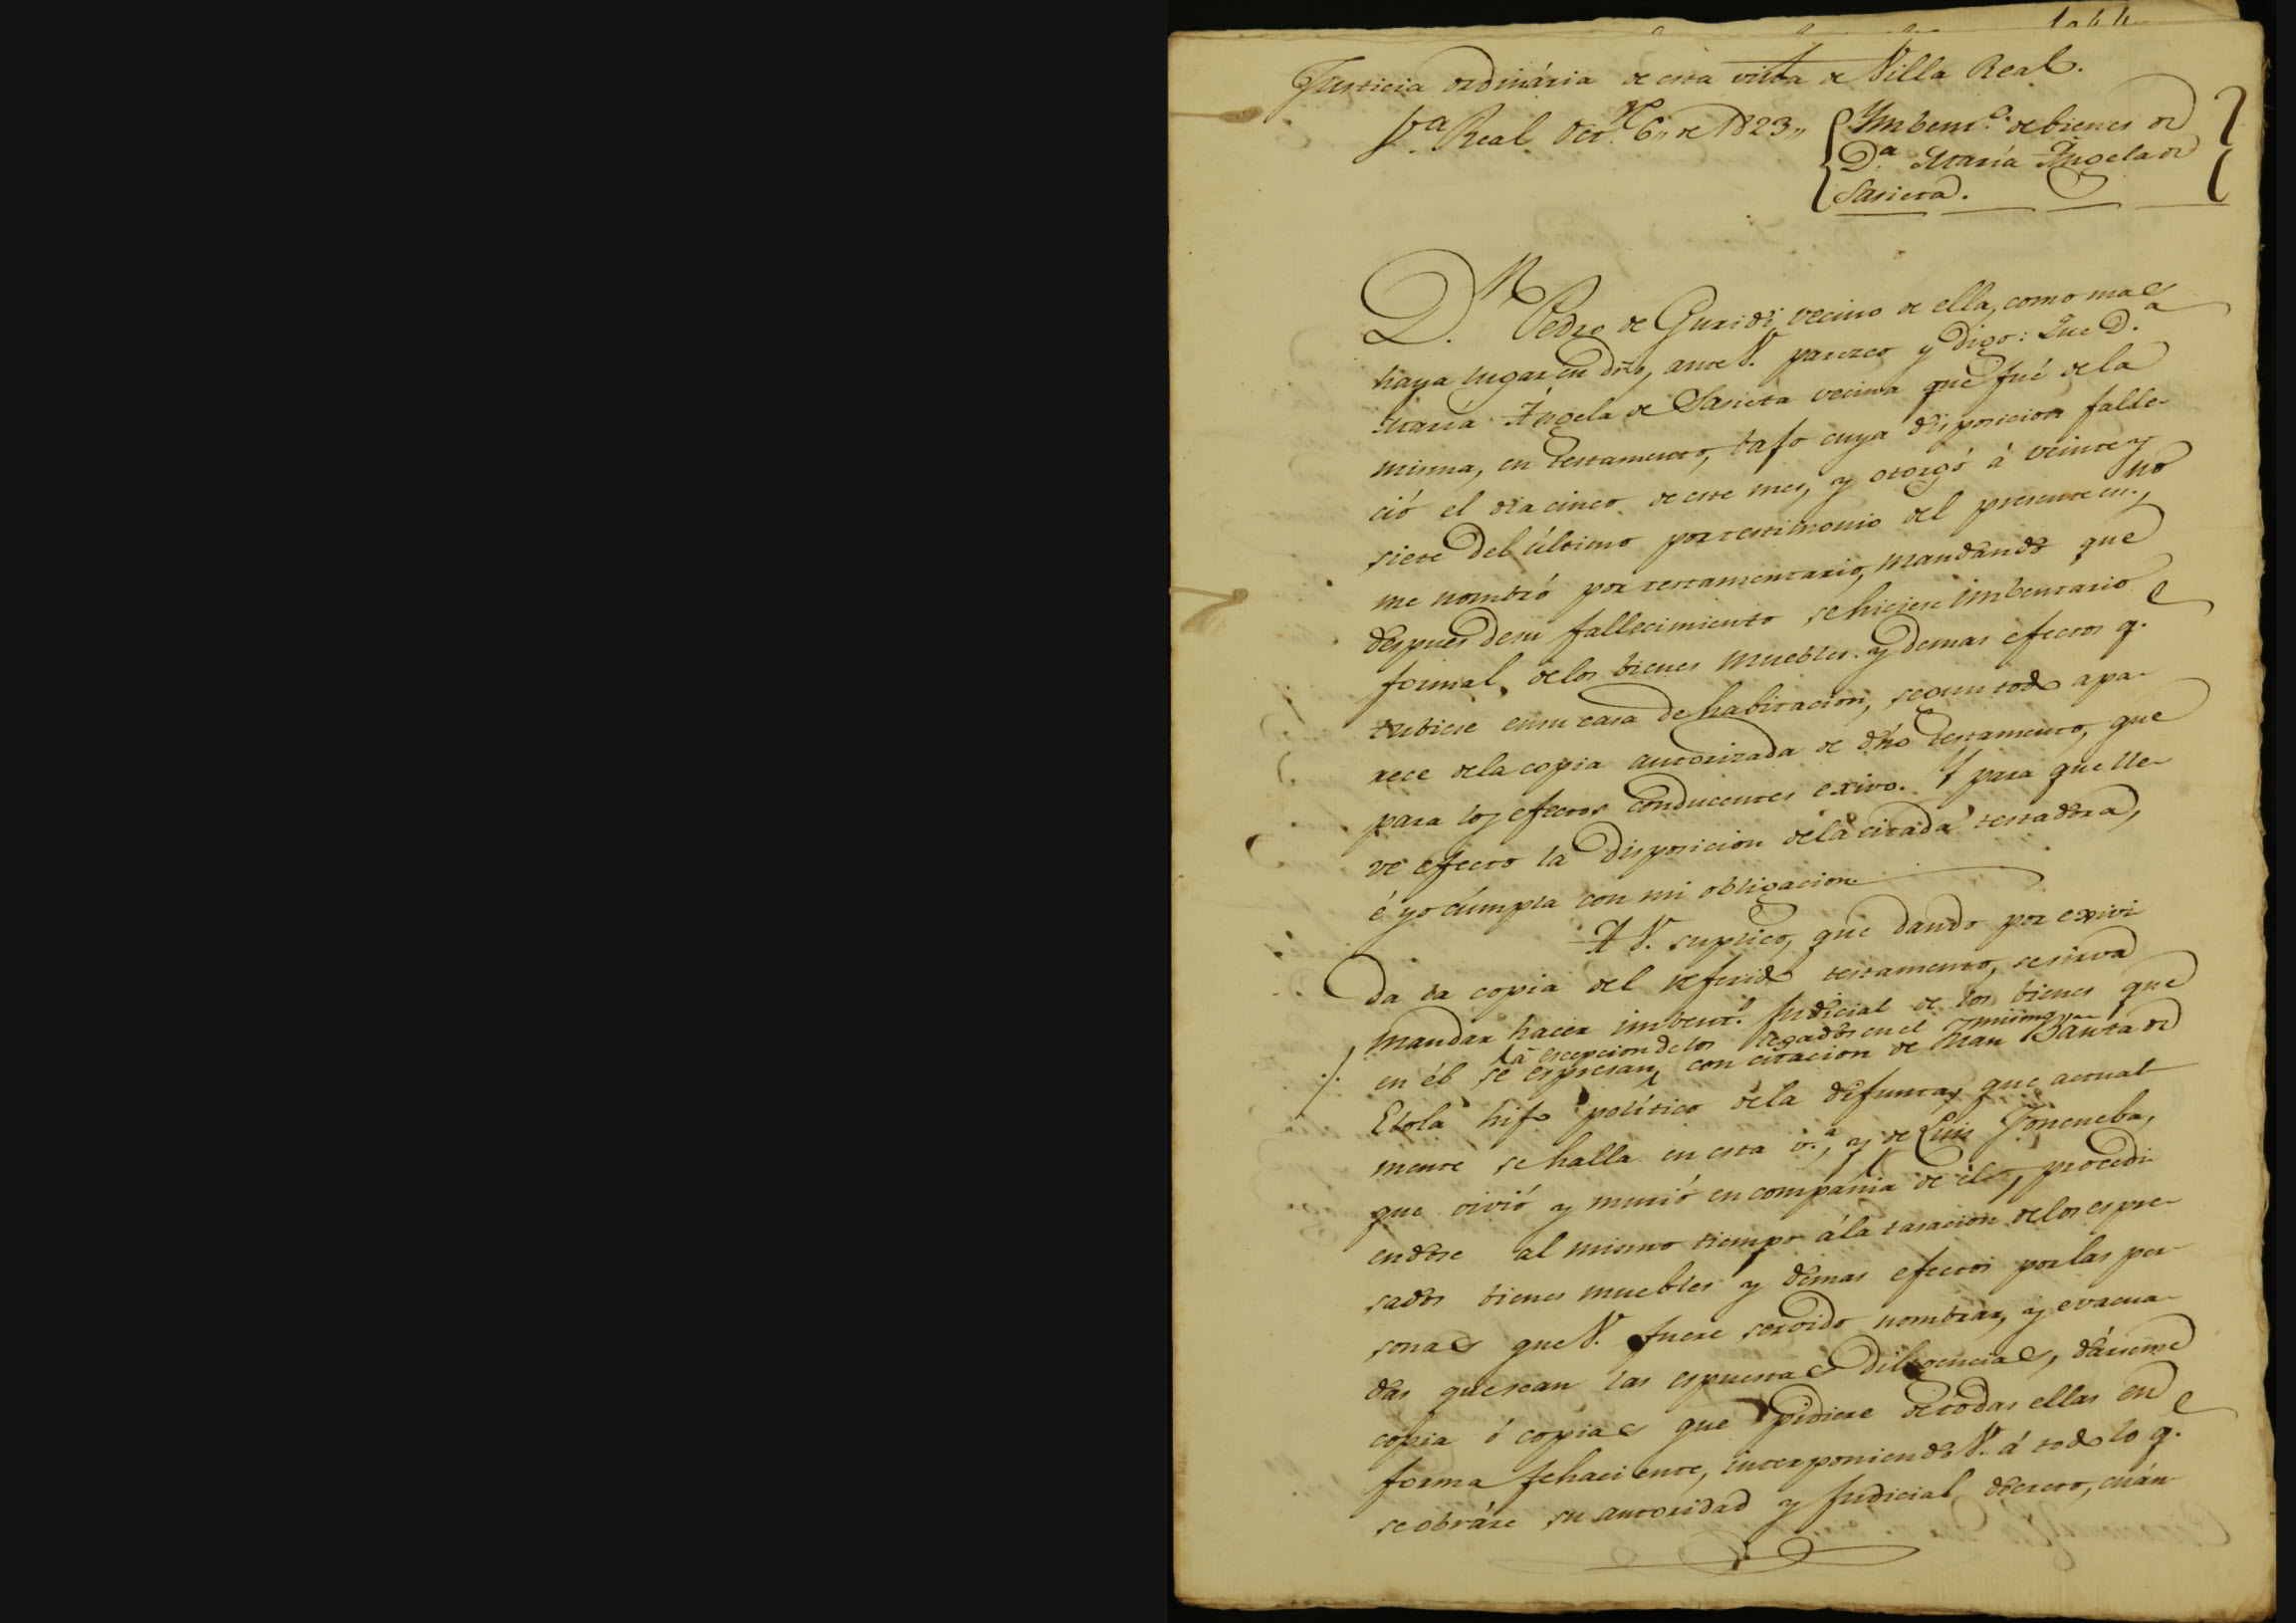 Justicia ordinária de esta villa de Villa Real.
V.a Real Oct.e 6,, de 1823,,
Ymbent.o de bienes de
D.a María Ángela de
Sasieta.
D.n Pedro de Guridi vecino de ella, como mas
haya lugar en dr̃o, ante V. parezco y digo: Que D.a
María Ángela de Sasieta vecina que fué de la
misma, en testamento, bajo cuya disposicion falle-
ció el dia cinco de este mes, y otorgó á veinte y
siete del último por testimonio del presente es.no
me nombró por testamentario, mandando que
despues de su fallecimiento se hiciese imbentario
formal de los bienes muebles y demas efectos q.e
tubiese en su casa de habitacion, segun todo apa-
rece de la copia autorizada de dh̃o testamento, que
para los efectos conducentes exivo. Y para que lle-
ve efecto la disposicion de la citada testadora,
é yo cúmpla con mi obligacion
A V. suplico, que dando por exivi-
da la copia del referido testamento, se sirva
mandar hacer imbent.o judicial de los bienes que
./. á escepcion de los legados en el mismo
en él se espresan, con citacion de Juan Bauta de
Elola hijo político de la difunta, que actual-
mente se halla en esta v.a, y de Luis
que vivió y murió en compañia de él, procedi-
endose al mismo tiempo á la tasacion de los espre-
sados bienes muebles y demas efectos por las per-
sonas que V. fuere servido nombrar, y evacua-
das que sean las espuestas diligencias, dárseme
copia ó copias que pidiere de todas ellas en
forma fehaciente, interponiendo V. á todo lo q.e
se obráre su autoridad y judicial decreto, cuán-